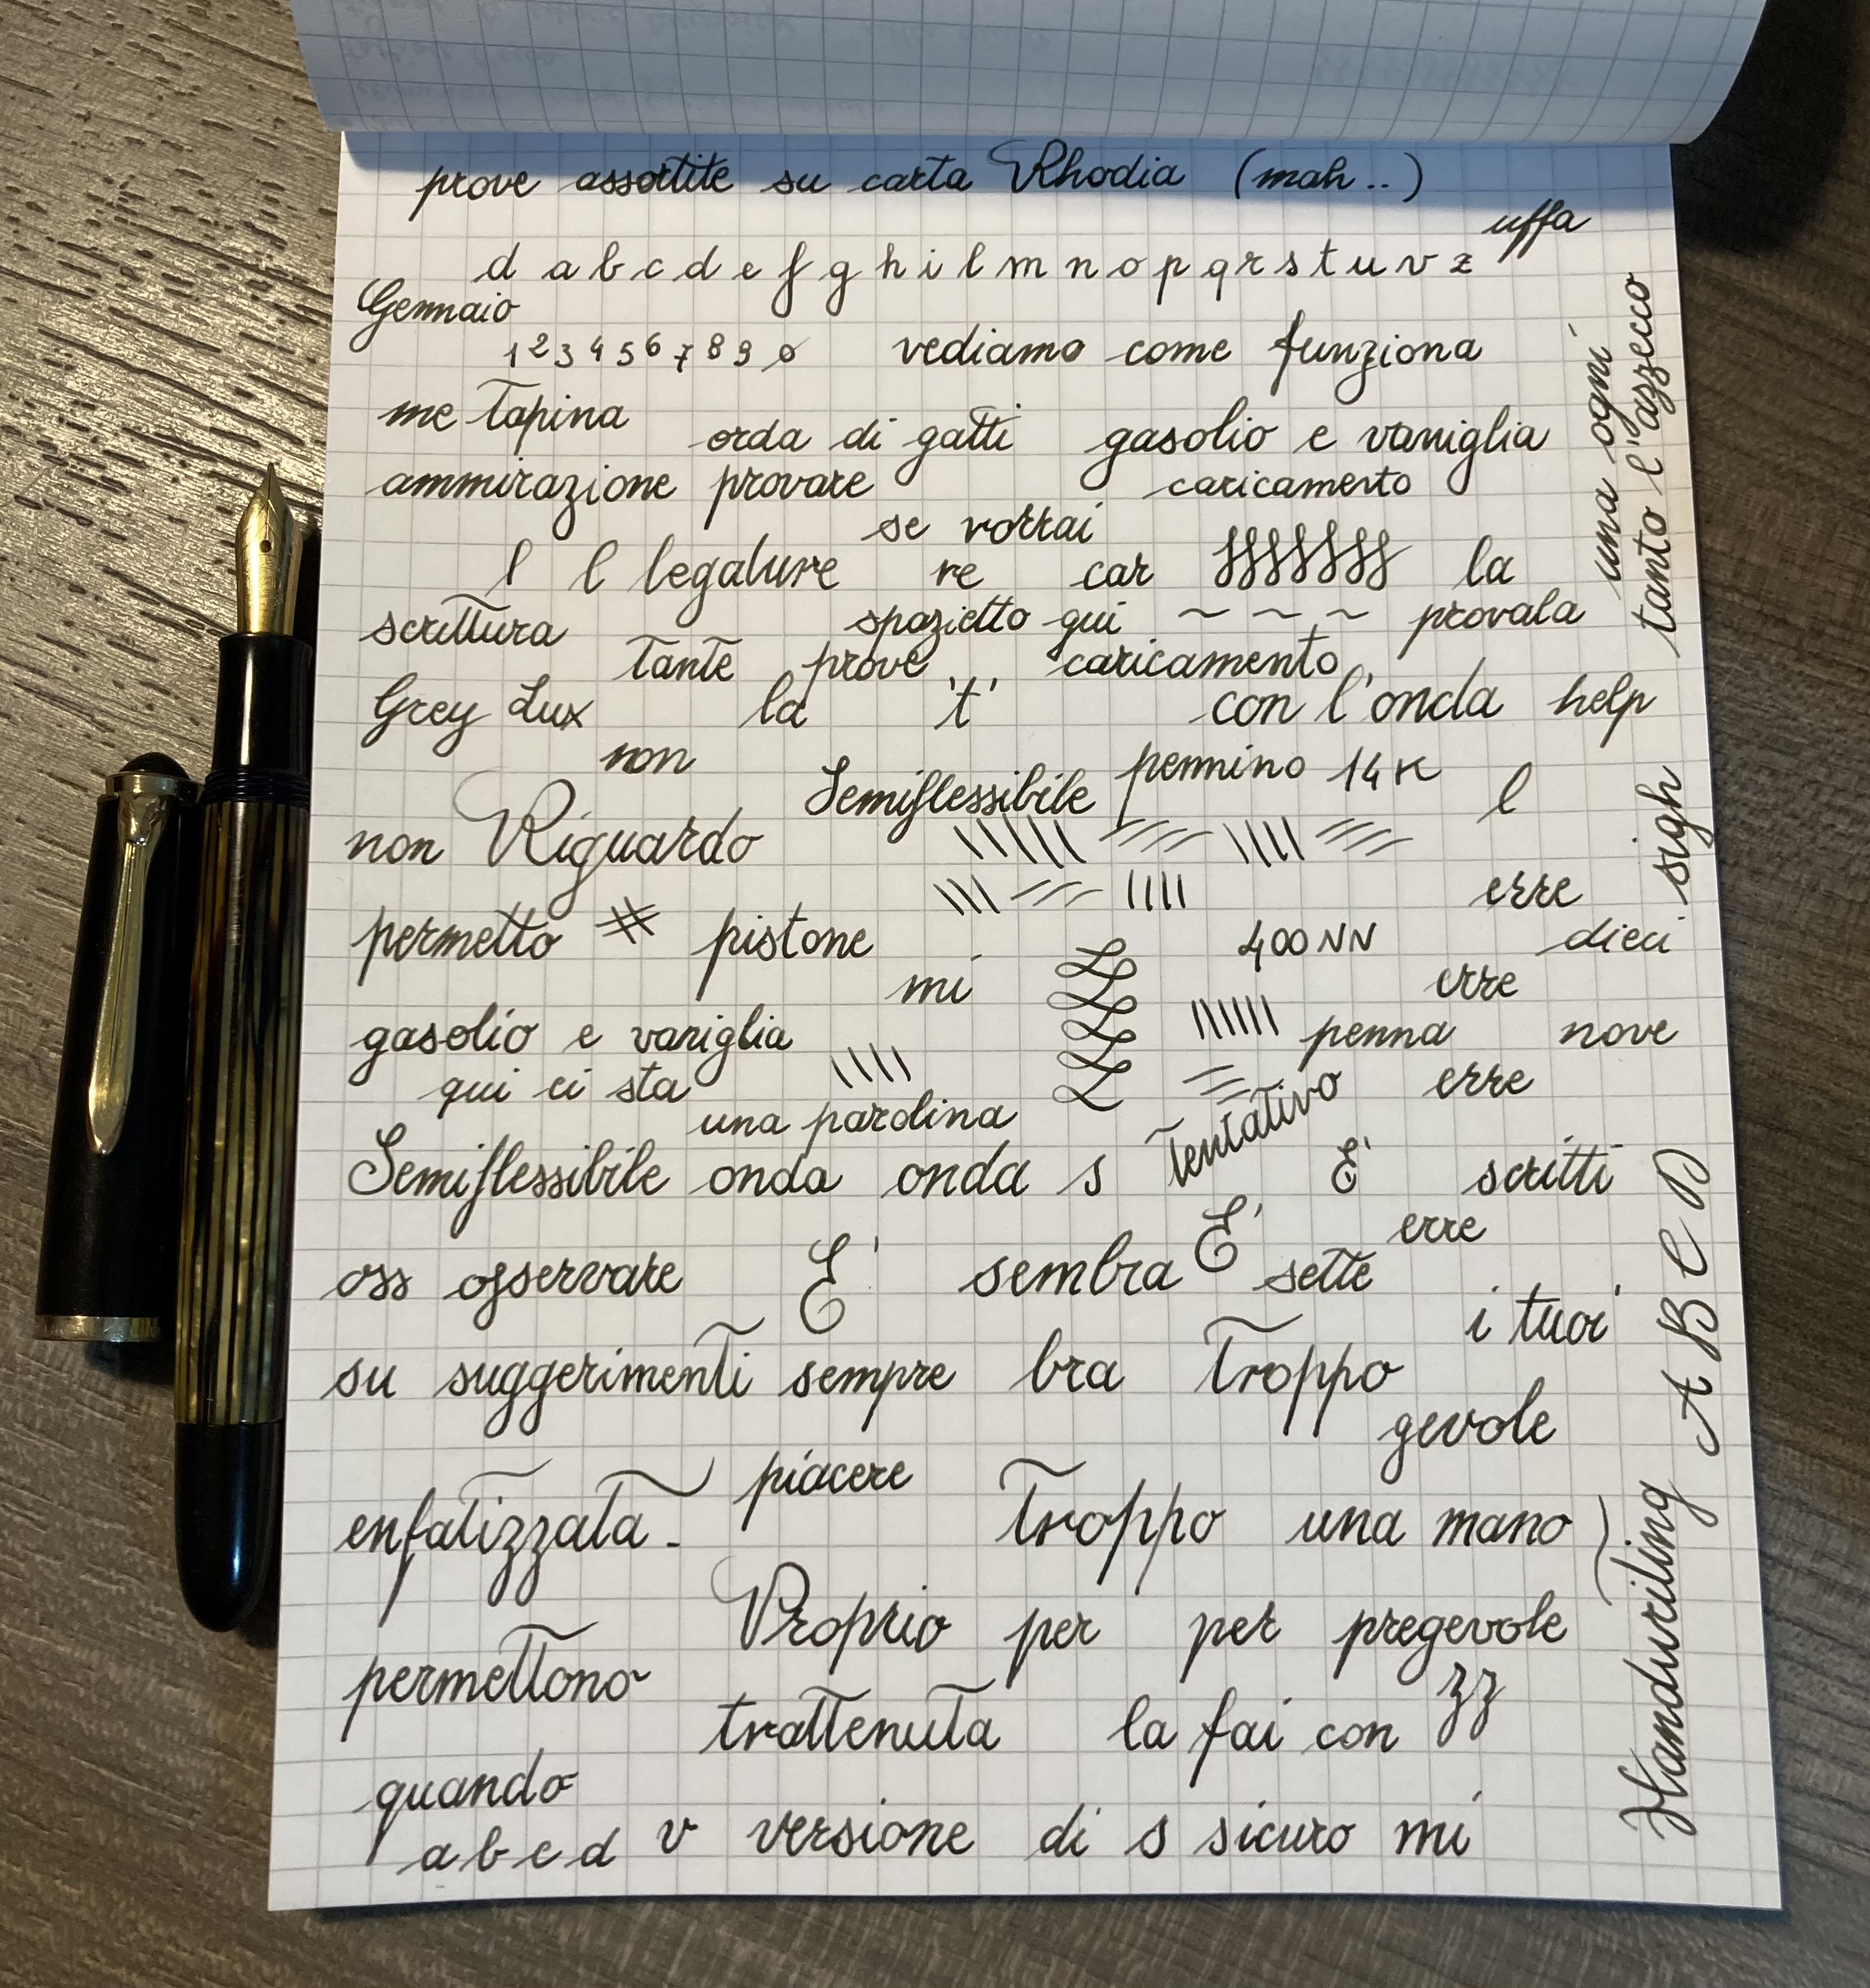 prove assortite su carta Rhodia (mah..)
uffa
d a b c d e f g h i l m n o p q r s t u v z
Gennaio
1 2 3 4 5 6 7 8 9 0 vediamo come funziona
me tapina orda di gatti gasolio e vaniglia
ammirazione provare caricamento
se vorrai
l l legature re car fffffff la
scrittura spazietto qui ~ ~ ~ provala
tante prove caricamento
Grey Lux la 't' con l'onda help
non Semiflessibile pennino 14K l
non Riguardo
erre
permetto # pistone 400NN dieci
mi erre
gasolio e vaniglia penna nove
qui ci sta erre
una parolina tentativo
Semiflessibile onda onda s E' scritti
E' erre
oss osservare E' sembra sette
i tuoi
su suggerimenti sempre bra troppo
gevole
piacere
enfatizzata - troppo una mano
Proprio per per pregevole
permettono zz
trattenuta la fai con
quando
a b c d v versione di s sicuro mi
una ogni
tanto l'azzecco
sigh
Handwriting A B C D